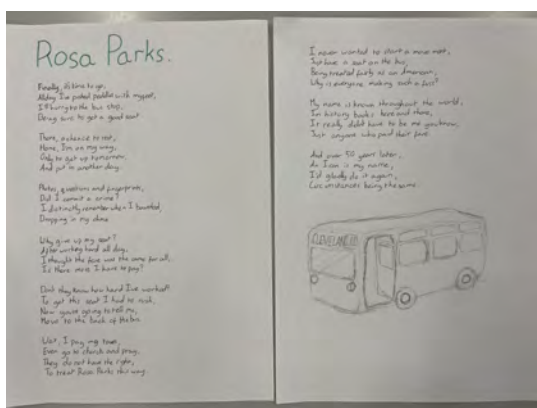 Rosa Parks.
Finally, it's time to go,
All day I've poked peddles with my feet,
I'll hurry to the bus stop,
Being sure to get a good seat.
There, a chance to rest,
Home, I'm on my way,
Only to get up tomorrow,
And put in another day.
Photos, questions and fingerprints,
Did I commit a crime?
I distinctly remember when I boarded,
Dropping in my dime.
Why give up my seat?
After working hard all day,
I thought the fare was the same for all,
Is there more I have to pay?
Don't they know how hard I've worked?
To get this seat I had to rush,
Now you're going to tell me,
Move to the back of the bus.
Wait, I pay my taxes,
Even go to church and pray,
They do not have the right,
To treat Rosa Parks this way.
I never wanted to start a movement,
Just have a seat on the bus,
Being treated fairly as an American,
Why is everyone making such a fuss?
My name is known throughout the world,
In history books here and there,
It really didn't have to be me you know,
Just anyone who paid their fare.
And over 50 years later,
An Icon is my name,
I'd gladly do it again,
being the same.
CLEVELAND